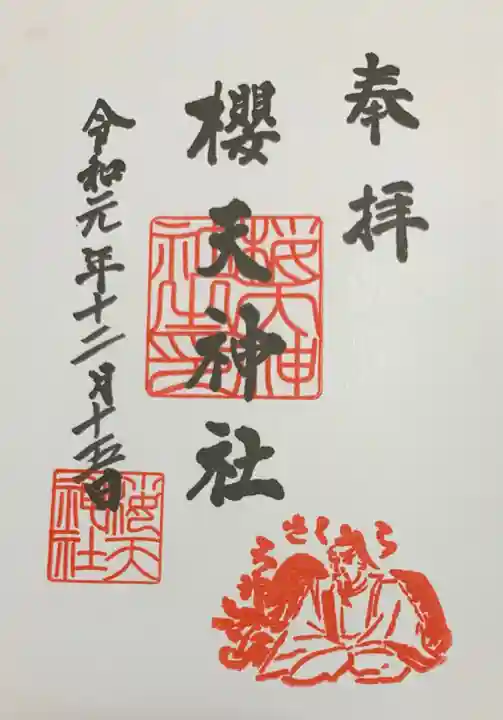 奉拝
櫻天神社
令和元年十二月十五日
桜天神社
さくら